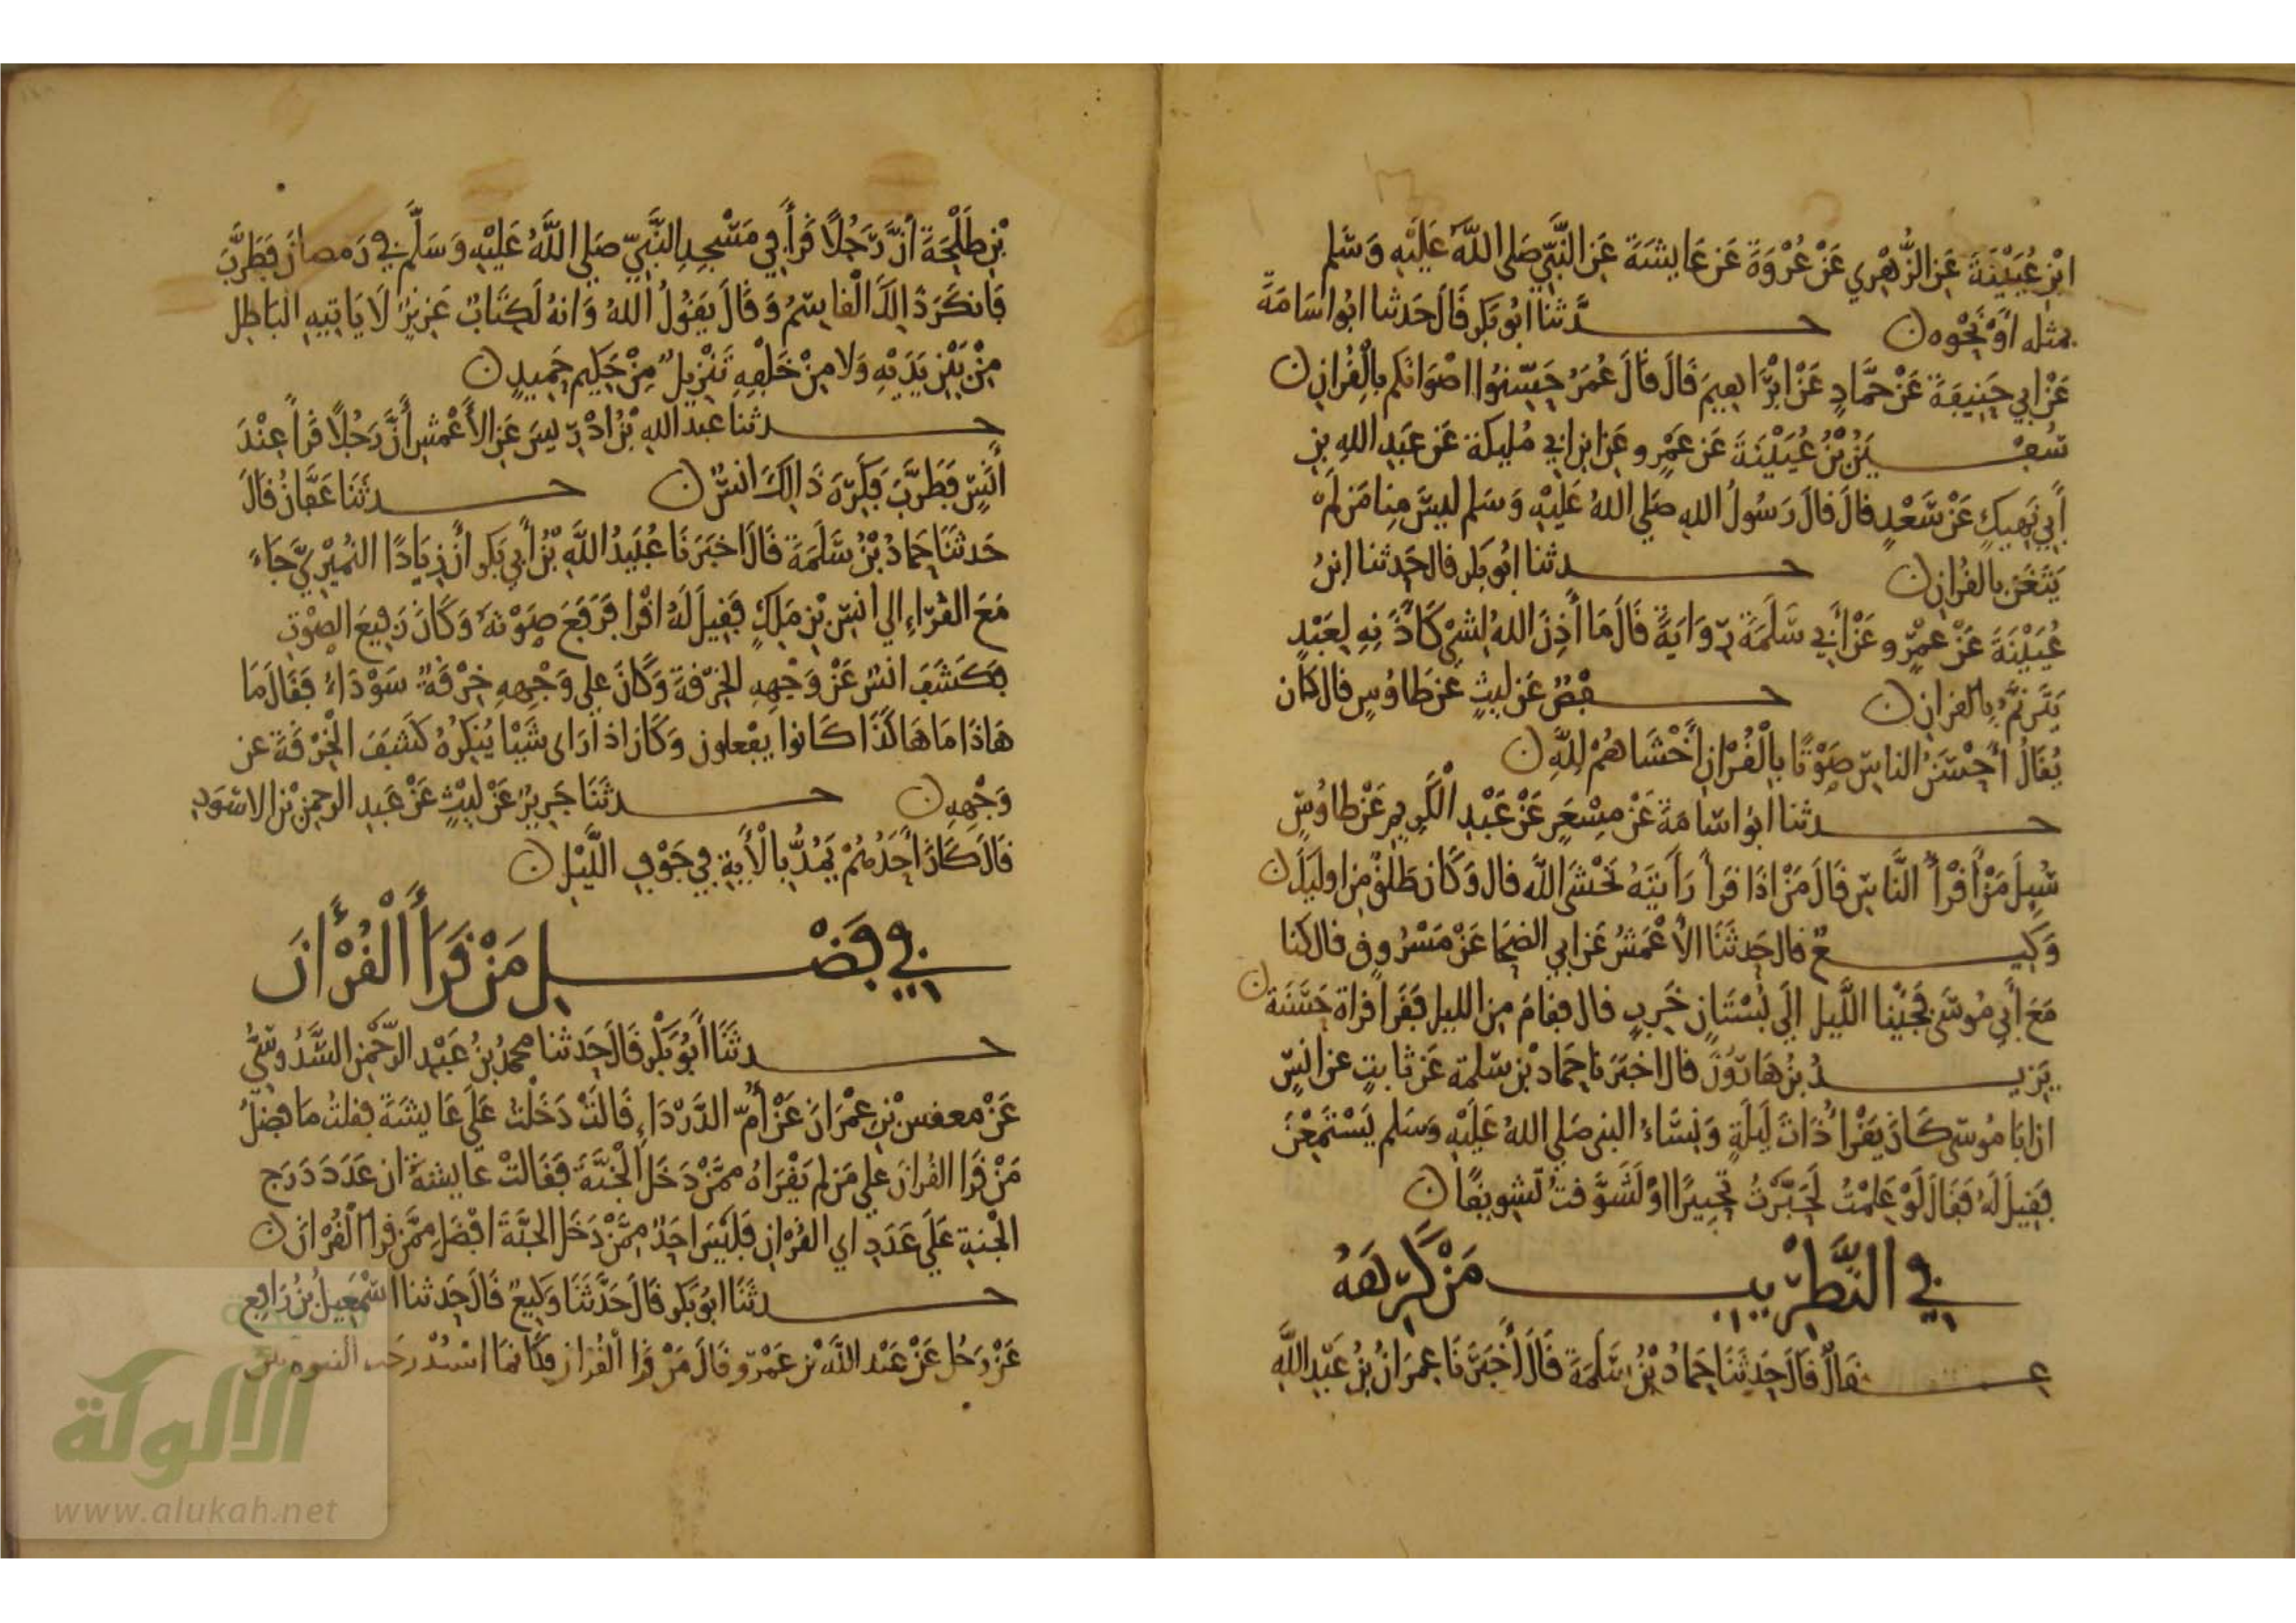 ابْنِ عُيَيْنَةَ عَنِ الزُّهْرِي عَنْ عُرْوَةَ عَنْ عَايِشَةَ عَنِ النَّبِيِّ صَلى اللَّهُ عَلَيْهِ وَسَلم
بمثله أوْ نَحْوِه ن حـــدَّثنا ابُو بَكر قَالَ حَدثنا ابُو اسَامَةَ
عَنْ ابي حَنِيفَةَ عَنْ حمَّادٍ عَنْ ابْرَاهِيمَ قَالَ قَالَ عُمَرُ حَسِّنُوا اصْوَاتكم بالْقُرانِ ن
سُفـــيَنُ بْنُ عُيَيْنَةَ عَن عَمْرٍو عَنِ ابن ابي مُلَيكة عَن عَبَدِ اللهِ بنِ
أَبِي نَهِيكٍ عَنْ سَعْدٍ قالَ قالَ رَسُولُ اللهِ صَلي اللهُ عَلَيْهِ وَسَلم ليسَ مِنا مَن لَمْ
يَتَغَنَّ بالقُرْانِ ن حـــدثنا ابُو بَكر قال حَدثنا ابنُ
عُيَيْنَةَ عَنْ عَمْرٍو عَنْ أَبي سَلَمَةَ رِوَايَةً قَالَ مَا أَذِنَ اللهُ لِشَىْ كَأَذَنِهِ لِعَبْدٍ
يَتَرنَّمُ بِالقرانِ ن حـــفْصٌ عَن ليثٍ عَن طَاوُسٍ قال كان
يُقَالُ أحْسَنُ الناسِ صَوْتًا بِالْقُرْانِ أَخْشَاهُمْ لِلَّهِ ن
حـــدثنا ابُو اسَامَةَ عَنْ مِسْعَرٍ عَنْ عَبْدِ الْكَرِيمِ عَنْ طاوُسٍ
سُيِلَ مَنْ أَقْرَأُ النَّاسِ قَالَ مَنْ اذَا قَرَأَ رَأَيتَهُ يَخْشَى اللَّه قال وَكَان طَلْقٌ مِن اوليكَ ن
وَكِيـــعٌ قال حَدثَنَا الأَعْمَشُ عَن ابي الضحَا عَنْ مَسْرُوقٍ قال كنا
مَعَ أَبِي مُوسَى فَجَيْنا اللَّيلَ إِلَى بُسْتَانٍ خَرِبٍ قال فقامَ مِن الليل فَقَرَأ قراة حَسَنَة ن
يَزيـــدُ بنُ هَارُونَ قال اخبَرَنا حمَاد بْن سَلمة عَن ثابتٍ عن انسٍ
ان ابَا مُوسَى كَانَ يَقْرَأُ ذَاتَ لَيلَةٍ وَنِسَاءُ النبي صَلي اللهُ عَلَيْهِ وَسَلم يَسْتَمِعْنَ
فقِيلَ لَهُ فَقَالَ لَوْ عَلِمْتُ لَحَبَّرْتُ تحبيرًا اوْ لَشَوَّقتُ تَشويقًا ن
في التَّطْرِيبِ مَنْ كَرِهَهُ
عـــفَانُ قَالَ حَدثَنَا حمَادُ بْنُ سَلَمَةَ قَالَ أَخبَرَنَا عِمرَانُ بْنُ عَبْدِ اللَّهِ
بْنِ طَلْحَةَ انَّ رَجُلاً قَرَأَ فِي مَسْجِدِ النَّبِيِّ صَلي اللَّهُ عَلَيْهِ وَسَلَّم في رَمضانَ فَطَرَّبَ
فَانكَرَ ذَالِكَ الْقَاسِمُ وَقالَ يَقُولُ اللهُ وَانهُ لَكِتَابٌ عَزيزٌ لَا يَاتِيهِ البَاطِل
مِنْ بَيْنِ يَدَيْهِ وَلا مِنْ خَلْفِهِ تَنْزِيلٌ مِنْ حَكِيمٍ حَمِيدٍ ن
حـــدثنا عبد اللهِ بْنُ ادْرِيسَ عَنِ الأَعْمَشِ أنَّ رَجُلاً قَرأ عِنْدَ
أَنَسٍ فَطَرَّبَ فكَرِهَ ذَالِكَ انسٌ ن حـــدثَنَا عَفَّانُ قَالَ
حَدثَنَا حمادُ بْنُ سَلَمَةَ قَالَ اخبَرَنَا عُبَيدُ اللَّهِ بْنُ أَبِي بَكر أنَّ زِيَادًا النُّمَيْرِيَّ جَاءَ
مَعَ القُرّاءِ الي انسِ بْنِ مَلِكٍ فقِيلَ لَهُ اقْرا فَرَفعَ صَوْتهُ وَكَانَ رَفِيعَ الصوْتِ
فكَشفَ انسٌ عَنْ وَجْهِهِ الخِرقةَ وَكَانَ علي وَجْهِهِ خِرْقَةٌ سَوْدَاءُ فقَالَ مَا
هَاذَا مَا هَاكذَا كَانوا يفْعلون وَكانَ اذا رَاى شَيْا يُنكِرُهُ كَشَفَ الْخِرْقَةَ عن
وَجْهِهِ ن حـــدثَنَا جَرِيرٌ عَنْ لَيْثٍ عَنْ عَبدِ الرحمنِ بْنِ الاسْوَدِ
قَالَ كَانَ أحَدُهُمْ يَمُدُّ بِالْأَيةِ فِي جَوْفِ اللَّيْلِ ن
في فَضْـــلِ مَنْ قَرَأَ الْقُرْأَنَ
حـــدثَنَا أَبُو بَكْر قَالَ حَدثنا محمدُ بنُ عَبْدِ الرَّحْمنِ السَّدُوسِيُّ
عَنْ معفس بْنِ عِمْرَانَ عَنْ أُمِّ الدَّرْدَاءِ قَالَتْ دَخَلْتُ عَلَى عَايشَةَ فقلتُ مَا فضْلُ
مَنْ قَرَا القُرانَ علي مَن لم يَقْرَاهُ ممَّنْ دَخَلَ الْجَنَّةَ فقَالتْ عايشةُ ان عَدَدَ دَرَج
الْجَنةِ عَلَي عَدَدِ اي القُرْانِ فَلَيْسَ احَدٌ مِمَّنْ دَخَل الجنَّةَ افضَلَ مِمَّن قرا الْقُرْانَ ن
حـــدثَنَا ابُو بَكر قَالَ حَدَّثَنَا وَكِيعٌ قَالَ حَدثنا اسْمَعِيلُ بْنُ رَافِعٍ
عَنْ رَجُل عَنْ عَبْد اللَّهِ بْن عَمْرٍو قَالَ مَنْ قَرا الْقُران فكَانمَا اسْتُدْرِجَت النبوة بين
الألوكة
www.alukah.net